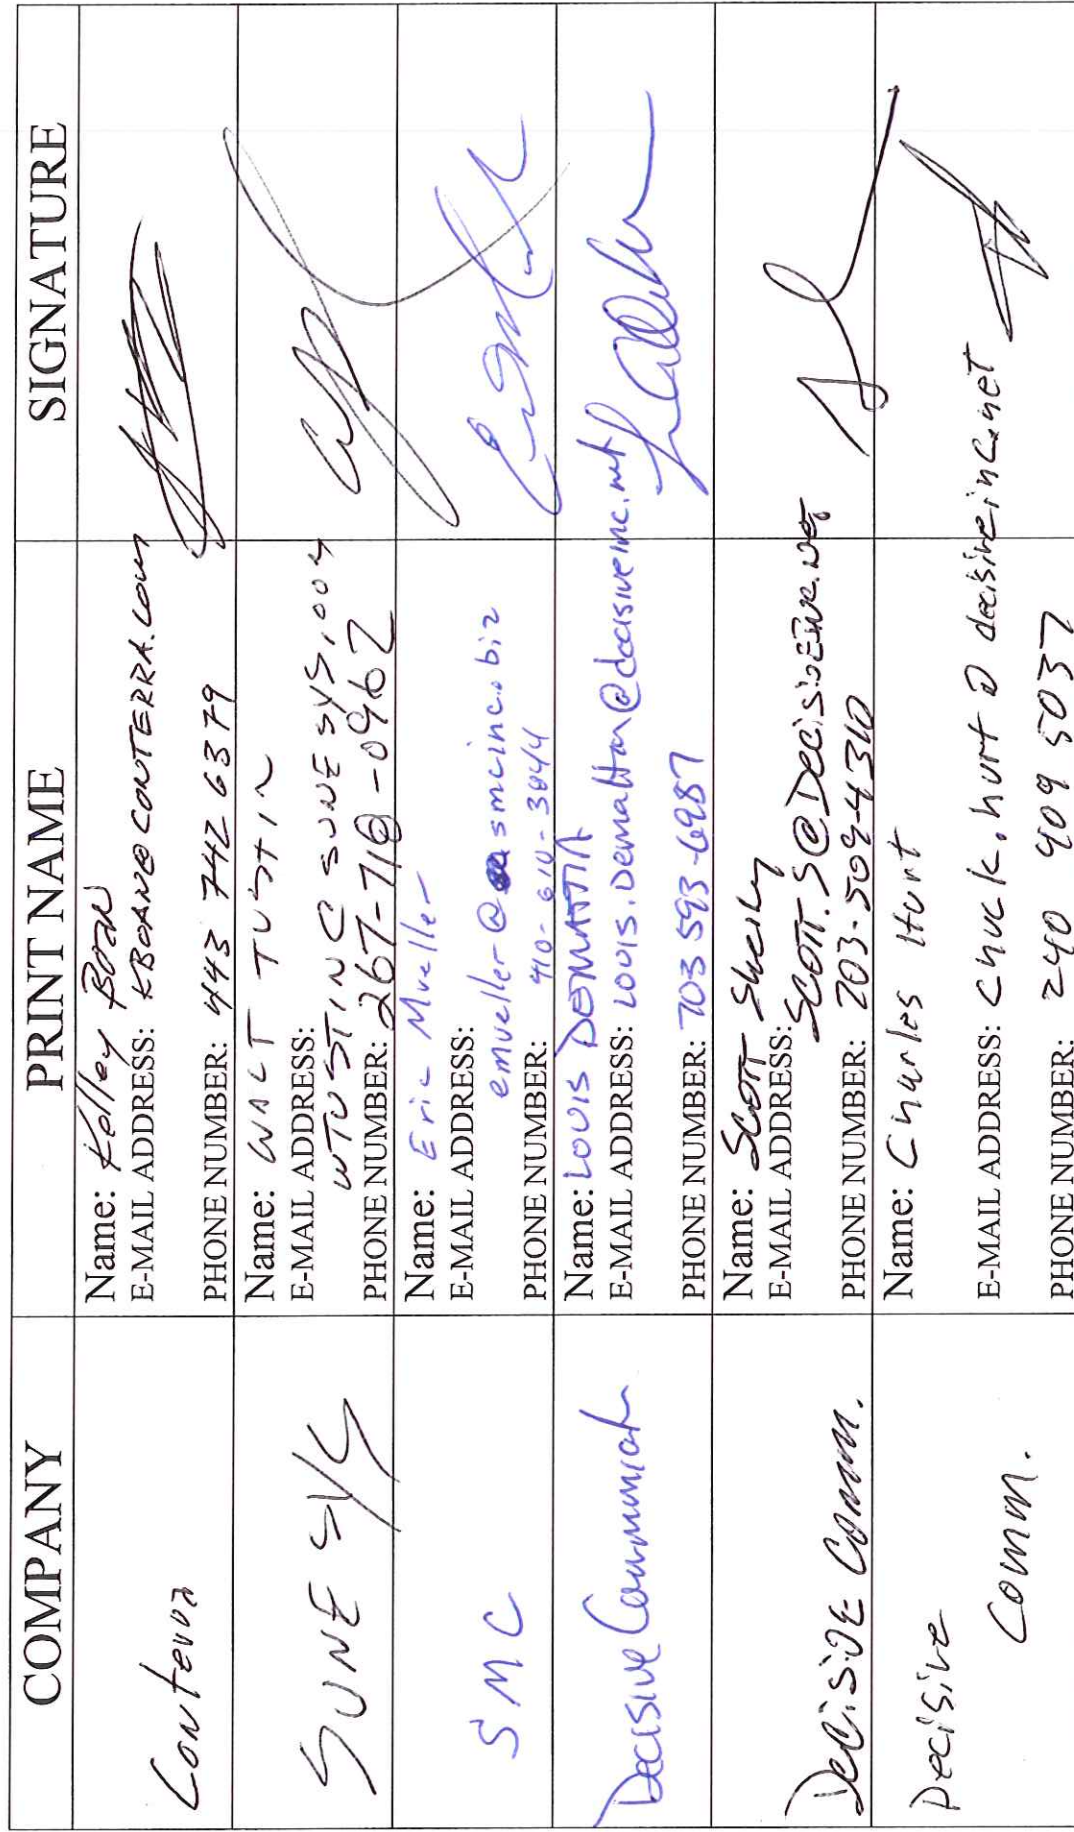 COMPANY
PRINT NAME
SIGNATURE
Conterra
Name: Kelley
E-MAIL ADDRESS: KBOAN@CONTERRA.COM
PHONE NUMBER: 443 742 6379
SUNESYS
Name: WALT TUSTIN
E-MAIL ADDRESS:
WTUSTIN@SUNESYS.COM
PHONE NUMBER: 267-718-0962
SMC
Name: Eric Mueller
E-MAIL ADDRESS:
emueller@smcinc.biz
PHONE NUMBER: 410-610-3844
Decisive
Name: LOUIS DEMATTIA
E-MAIL ADDRESS: LOUIS.Demattia@decisiveinc.net
PHONE NUMBER: 703 593-6987
DECISIVE Comm.
Name: Scott
E-MAIL ADDRESS:
SCOTT.S@DecisiVEINC.NET
PHONE NUMBER: 703-509-4310
Decisive
Comm.
Name: Charles Hurt
E-MAIL ADDRESS: Chuck.hurt@decisiveinc.net
PHONE NUMBER: 240 409 5037